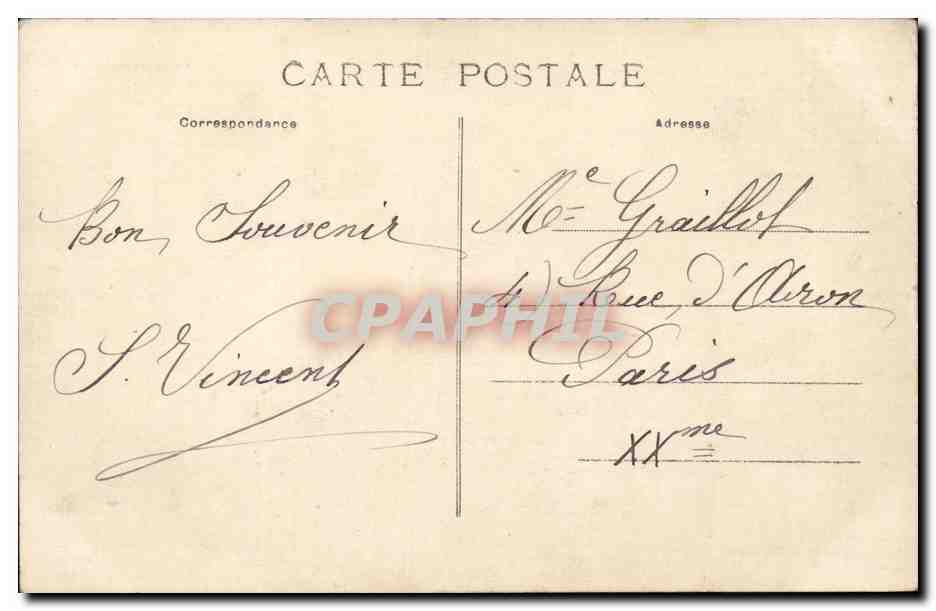 CARTE POSTALE
Correspondance
Adresse
Bon Souvenir
S. Vincent
Me Graillot
4) Rue d'Avron
Paris
XXme
CPAPHIL